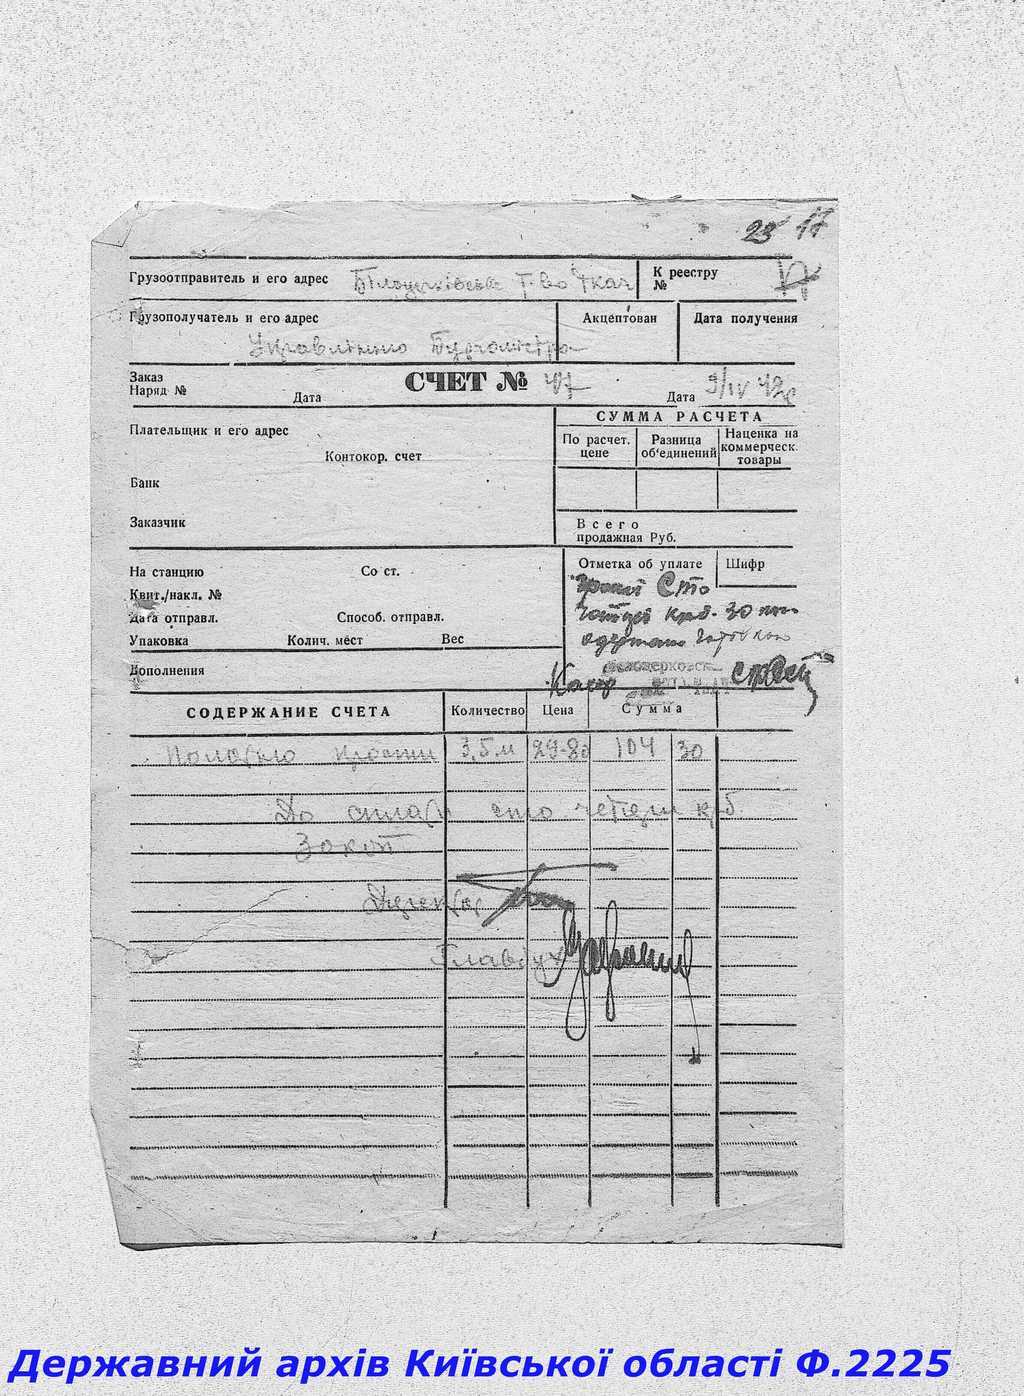 23 17
Грузоотправитель и его адрес Білоцерківське т-во Ткач
К реестру
№ 17
Грузополучатель и его адрес
Управлінню Бургомістра
Акцептован
Дата получения
Заказ
Наряд №
Дата
СЧЕТ № 47
Дата 9/IV 42
Плательщик и его адрес
Контокор. счет
Банк
Заказчик
СУММА РАСЧЕТА
По расчет. цене
Разница об'единений
Наценка на коммерческ. товары
Всего
продажная Руб.
На станцию
Со ст.
Квит./накл. №
Дата отправл.
Способ. отправл.
Упаковка
Колич. мест
Вес
Дополнения
Отметка об уплате
Шифр
гроші Сто
чотири крб. 30 коп.
одержано
Касир
СОДЕРЖАНИЕ СЧЕТА
Количество
Цена
Сумма
Полотно 3,5 м 29-80 104 30
До сплати сто чотири крб
30 коп
Директор
Главбух
Державний архів Київської області Ф.2225